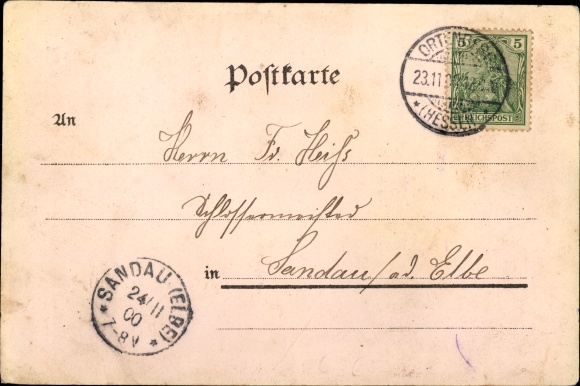 Postkarte
5 5
REICHSPOST
23.11
(HESSEN)
An
Herrn Fr. Heiss
Schlossermeister
in Sandau a/d. Elbe
* SANDAU (ELBE) *
24/11
00
7-8V